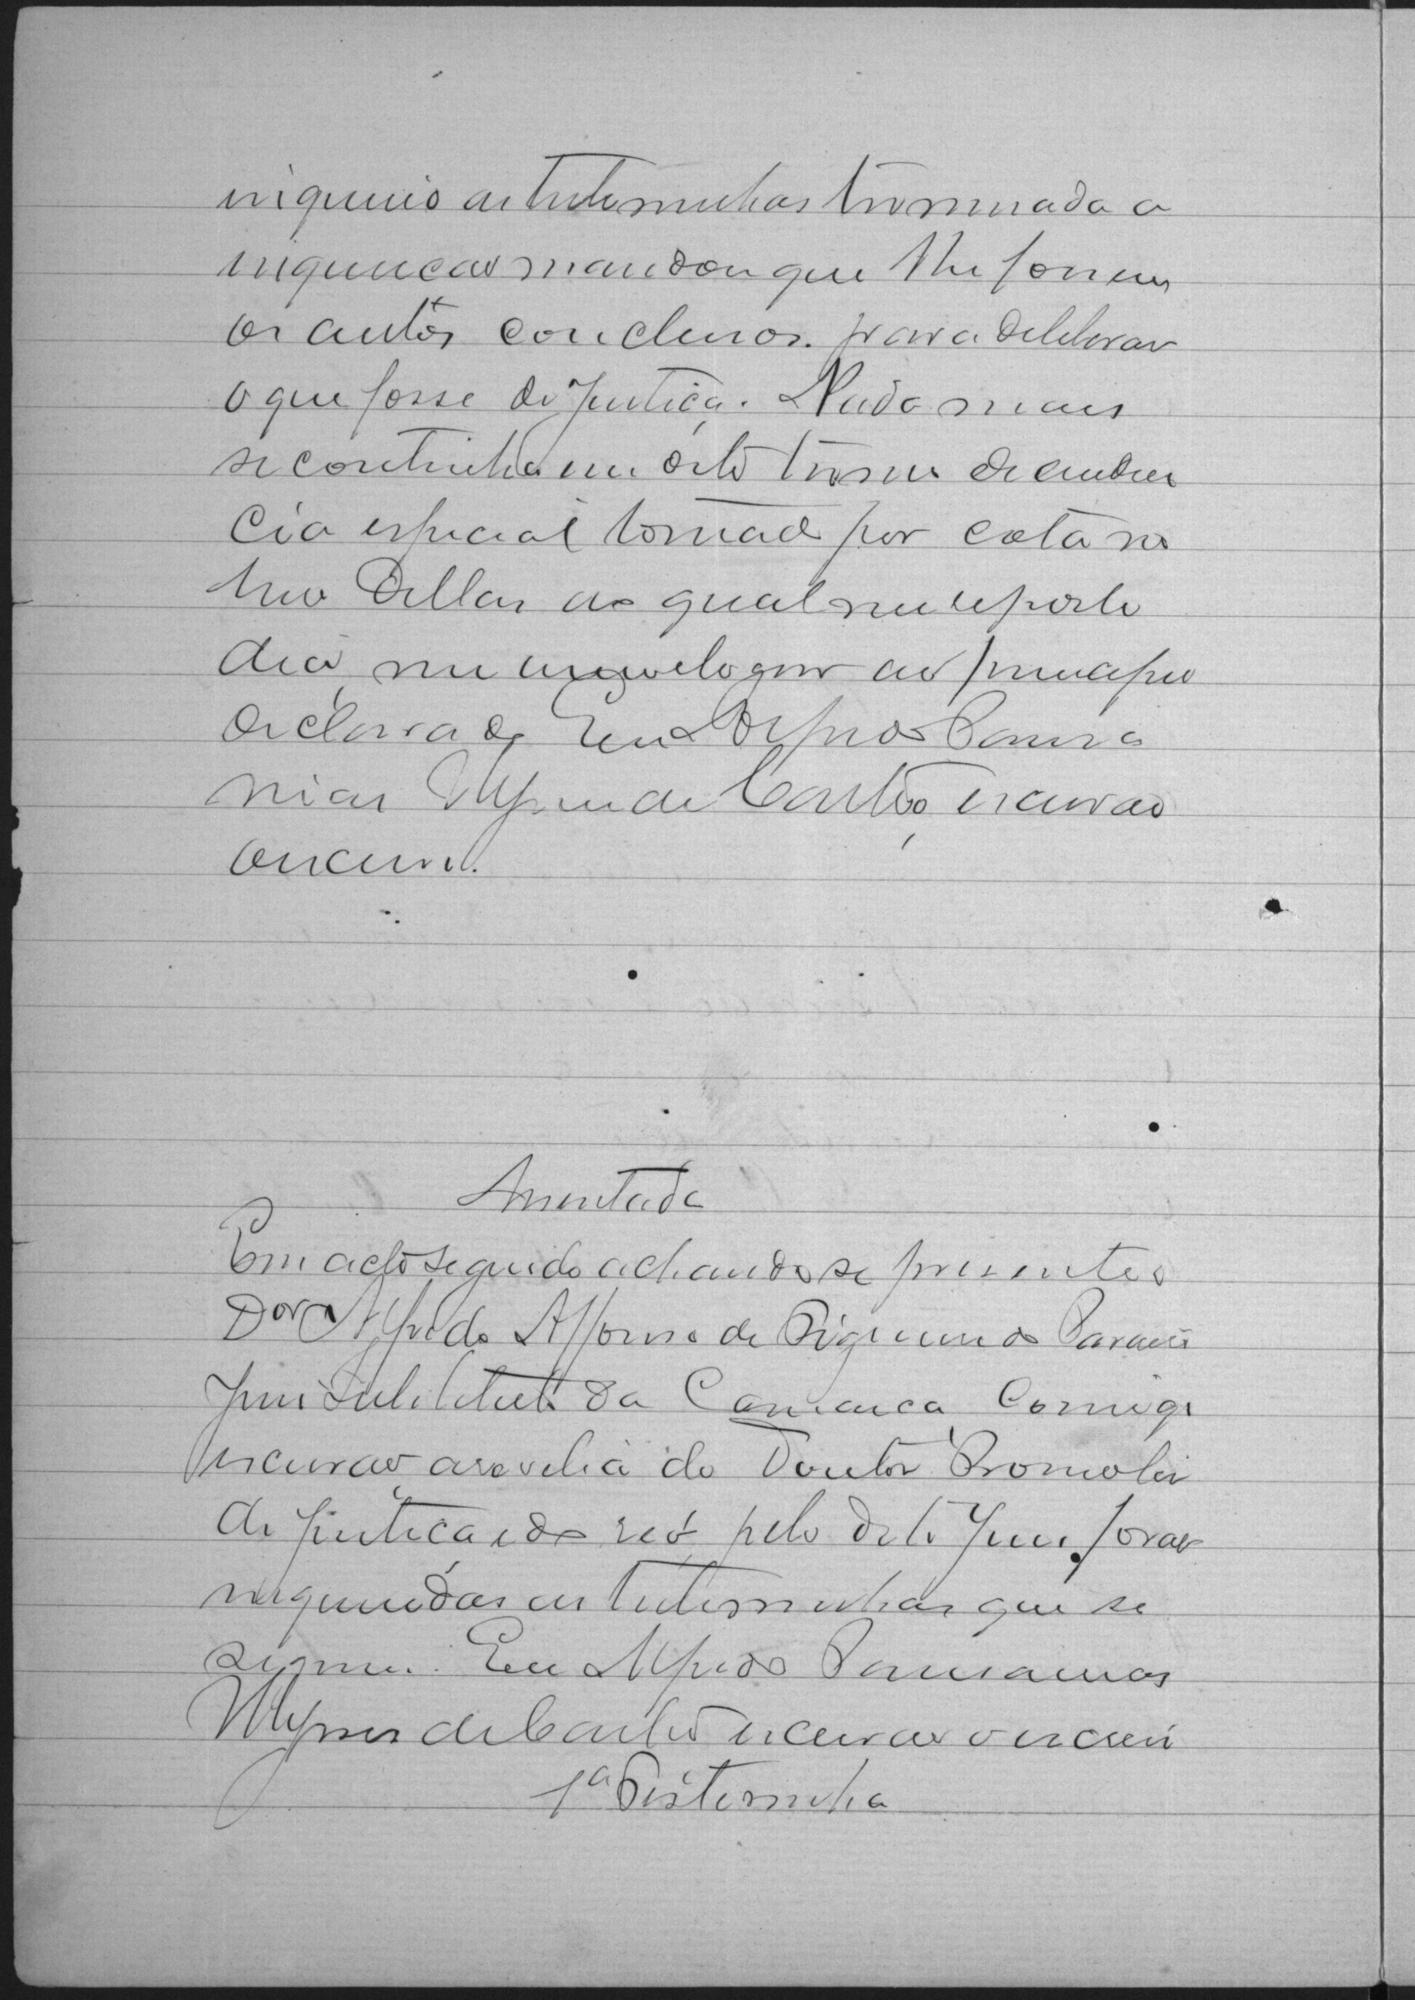 inquerio as testemunhas terminada a
inquericao mandou que lhe fossem
os autos conclusos para deliberar
o que fosse de justiça. Nada mais
se continha em dito termo de audien
cia especial tomado por cota no
meu dellas ao qual me reporto
dia, mez anno e logar ao principio
declarado Eu Alfredo Pausa
nias Ulysses de Castro, escrivão
o escrevi.
Assentada
Em acto seguido achando se presente o
Dor Alfredo Affonso de
Juiz Substituto da Comarca Comigo
escrivão, a revelia do Doutor Promotor
de justiça e do reo pelo dito Juiz forão
inqueridas as testemunhas que se
segue. Eu Alfredo Pausanias
Ulysses de Castro escrivão o escrevi
1ª Testemunha